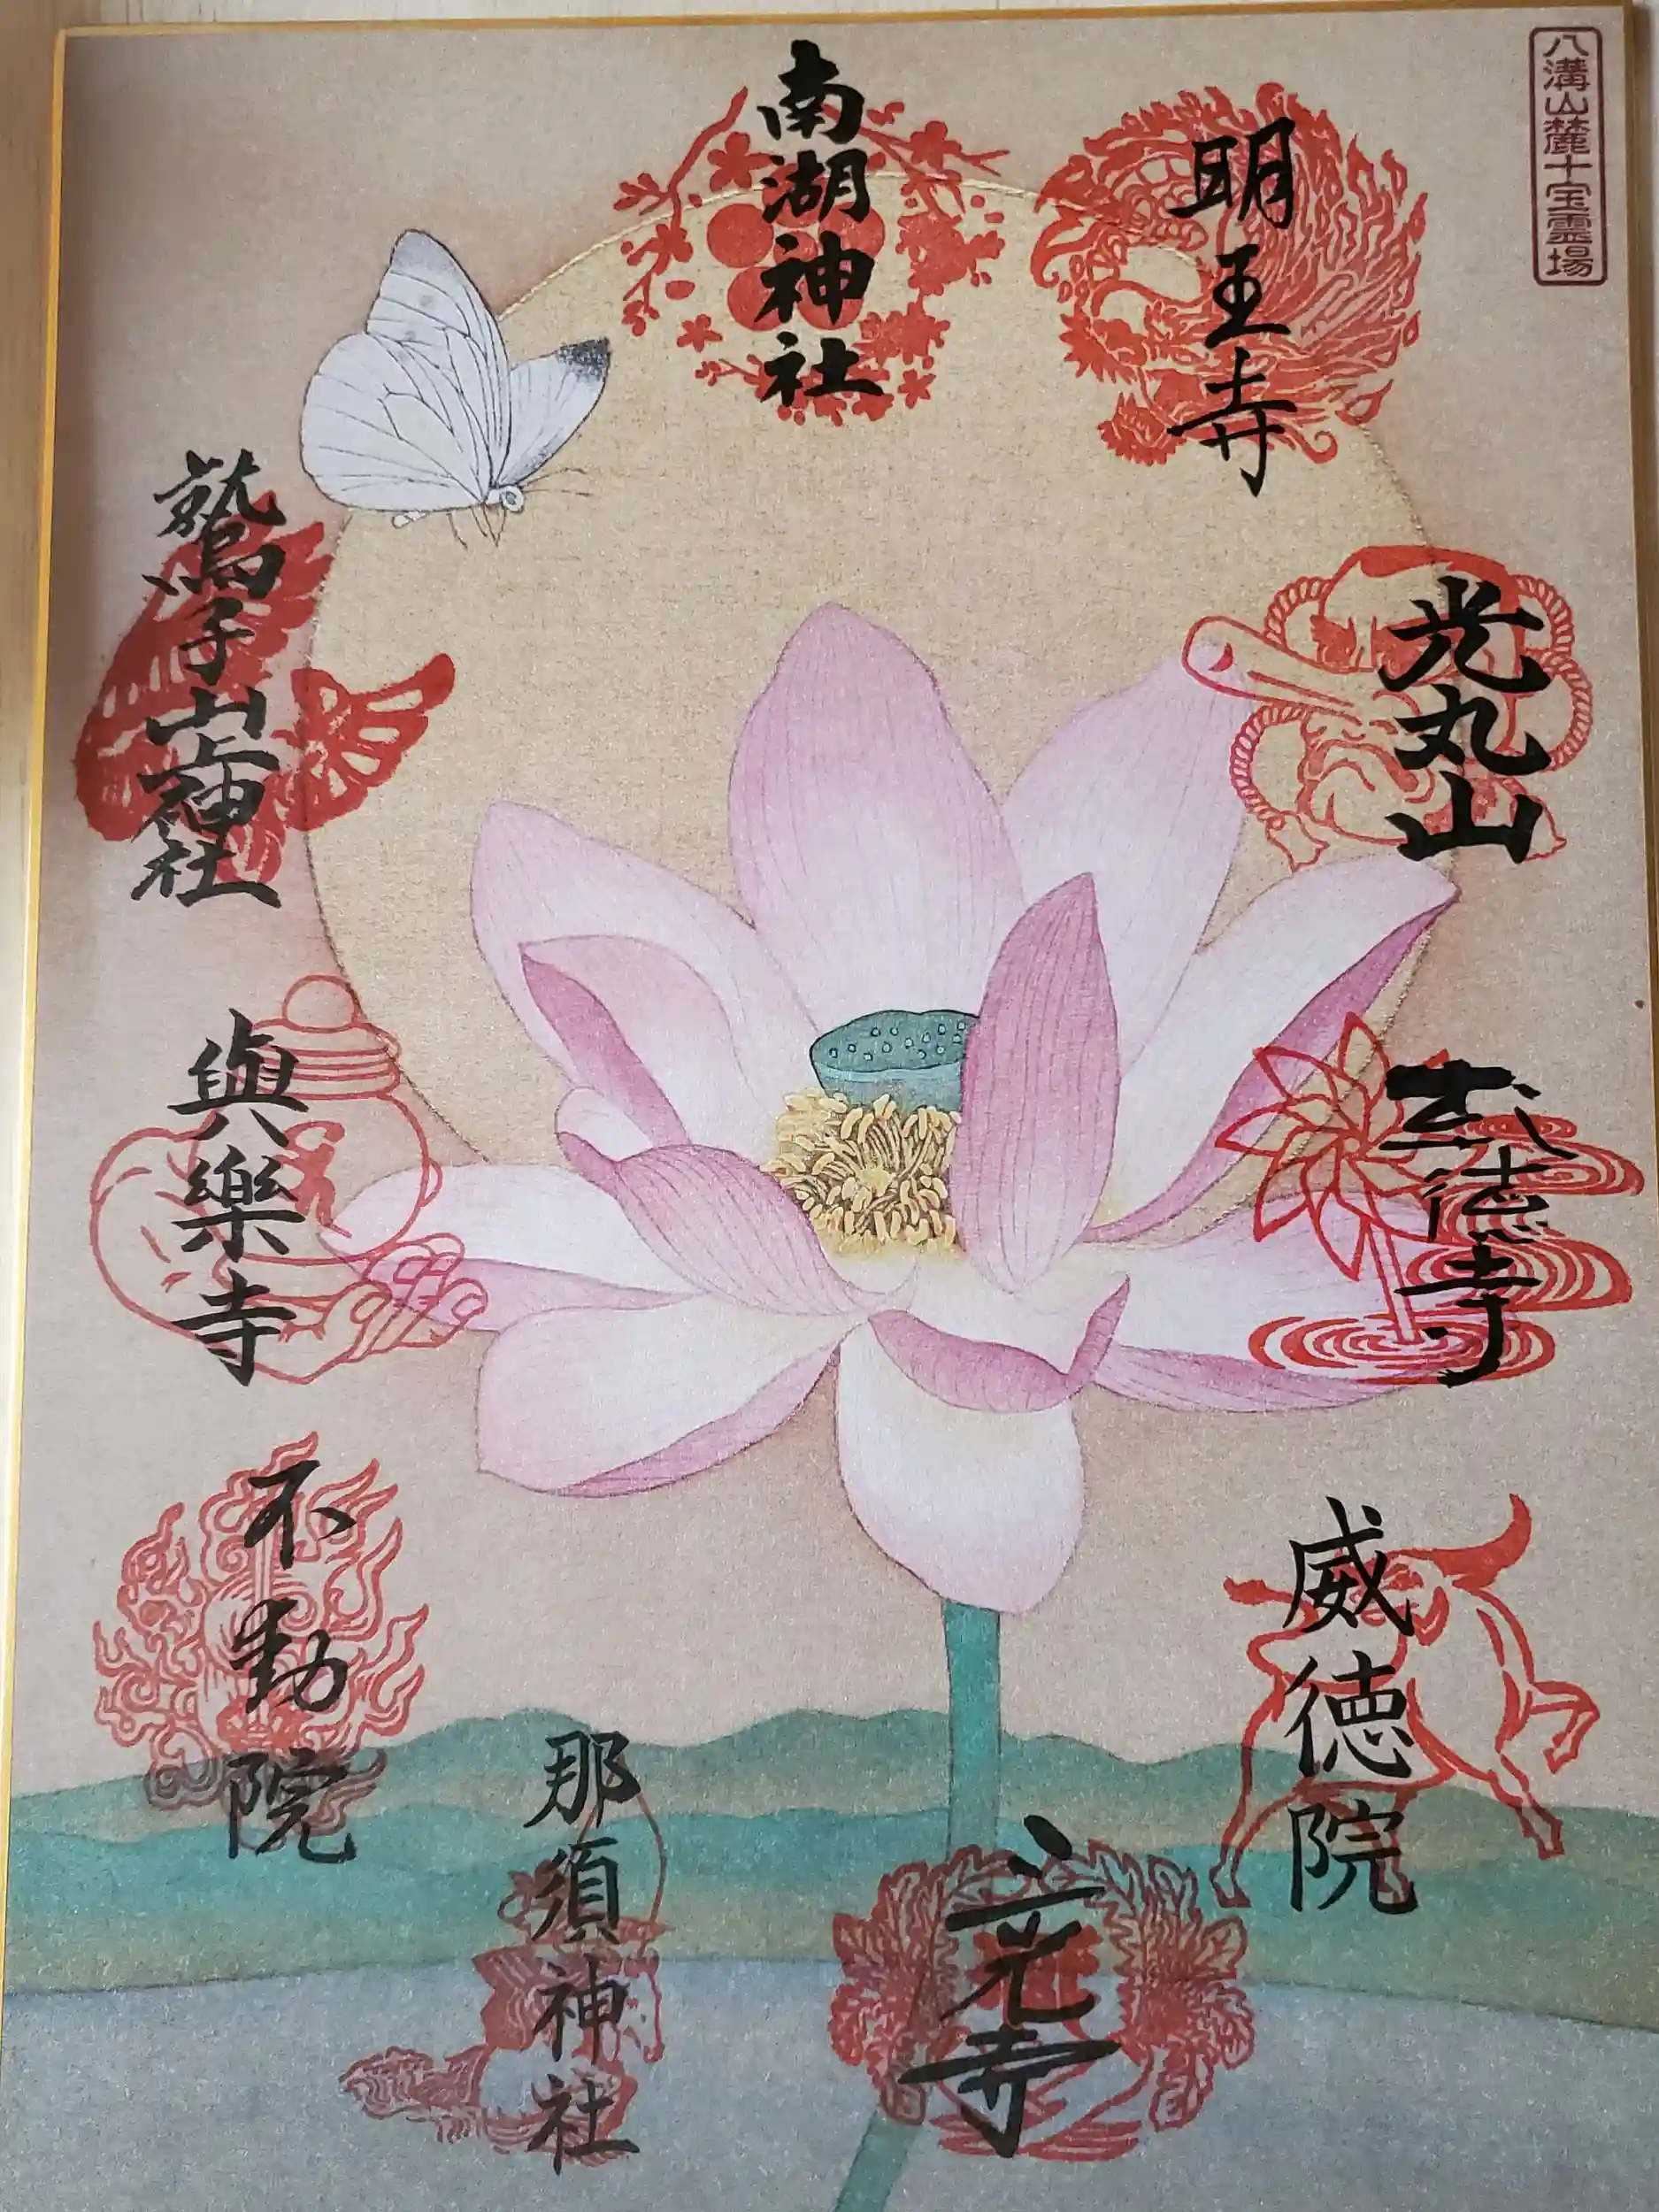 八溝山麓十宝霊場
明王寺
光丸山
武徳寺
威徳院
三光寺
南湖神社
鷲子山上神社
與樂寺
不動院
那須神社